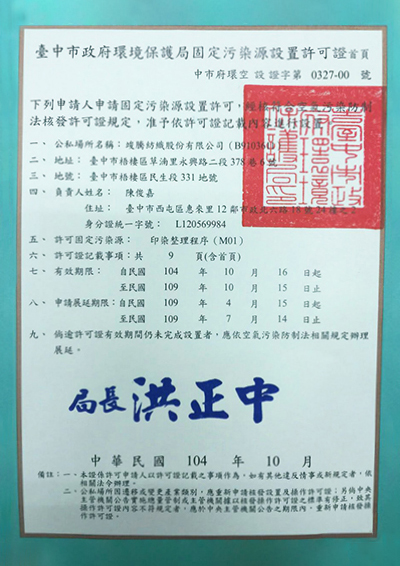 臺中市政府環境保護局固定污染源設置許可證首頁
中市府環空 設 證字第 0327-00 號
下列申請人申請固定污染源設置許可,經核符合空氣污染防制
法核發許可證規定,准予依許可證記載內容進行設置
一、公私場所名稱:竣騰紡織股份有限公司(B91036)
二、地址:臺中市梧棲區草湳里永興路二段378巷6號
三、地號:臺中市梧棲區民生段331地號
四、負責人姓名:陳俊嘉
住址:臺中市西屯區惠來里12鄰市政北六路
身分證統一字號:L120569984
五、許可固定污染源:印染整理程序(M01)
六、許可證記載事項:共 9 頁(含首頁)
七、有效期限:自民國 104 年 10 月 16 日起
至民國 109 年 10 月 15 日止
八、申請展延期限:自民國 109 年 4 月 15 日起
至民國 109 年 7 月 14 日止
九、倘逾許可證有效期間仍未完成設置者,應依空氣污染防制法相關規定辦理
展延。
局長 洪正中
中華民國 104 年 10 月
備註:一、本證係許可申請人以許可證記載之事項作為,如有其他違反情事或新規定者,依
相關法令辦理。
二、公私場所因遷移或變更產業類別,應重新申請核發設置及操作許可證;另倘中央
主管機關公告實施總量管制或主管機關據以核發許可證之標準有修正,致其
操作許可證內容不符規定者,應於中央主管機關公告之期限內,重新申請核發
操作許可證。